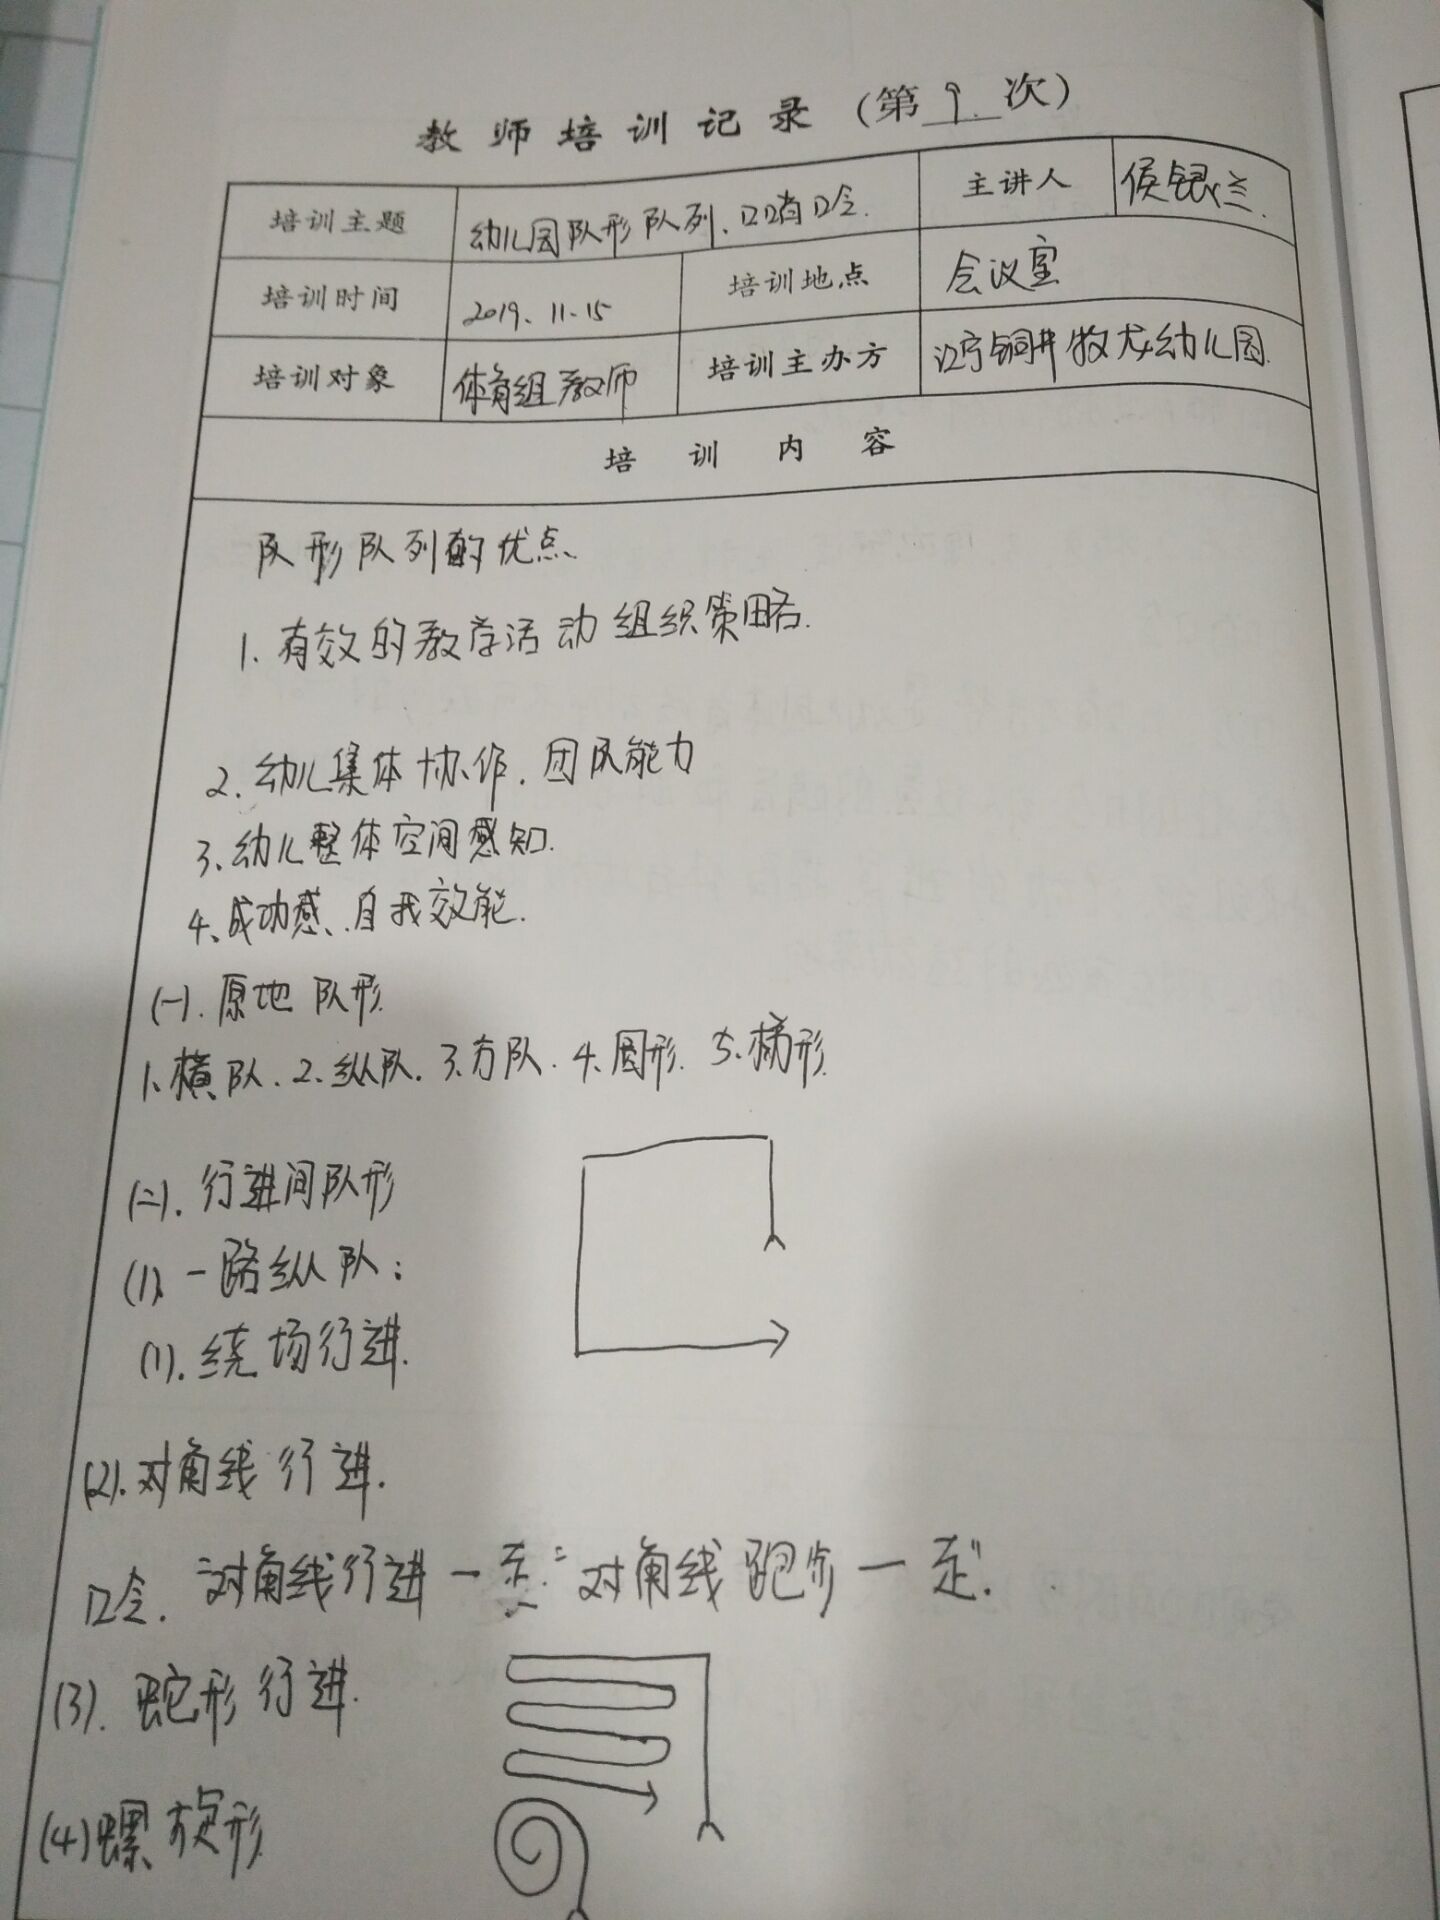 教师培训记录（第9次）
培训主题 幼儿园队形队列、口哨口令. 主讲人 侯银兰.
培训时间 2019、11.15 培训地点 会议室
培训对象 体育组教师 培训主办方 江宁铜井牧龙幼儿园.
培训内容
队形队列的优点、
1、有效的教学活动组织策略.
2、幼儿集体协作、团队能力
3、幼儿整体空间感知.
4、成功感、自我效能.
(一).原地队形.
1、横队、2、纵队、3、方队、4、圆形、5、梯形.
(二).行进间队形
(1)、一路纵队：
(1).绕场行进.
(2).对角线行进.
口令. “对角线行进一走”“对角线跑步一走”.
(3).蛇形行进.
(4)螺旋形